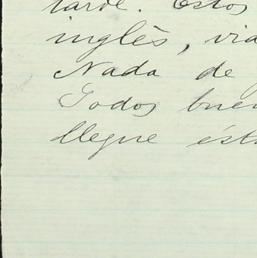 tarde. Estos
inglés, via
Nada de
Todos buen
llegue ést